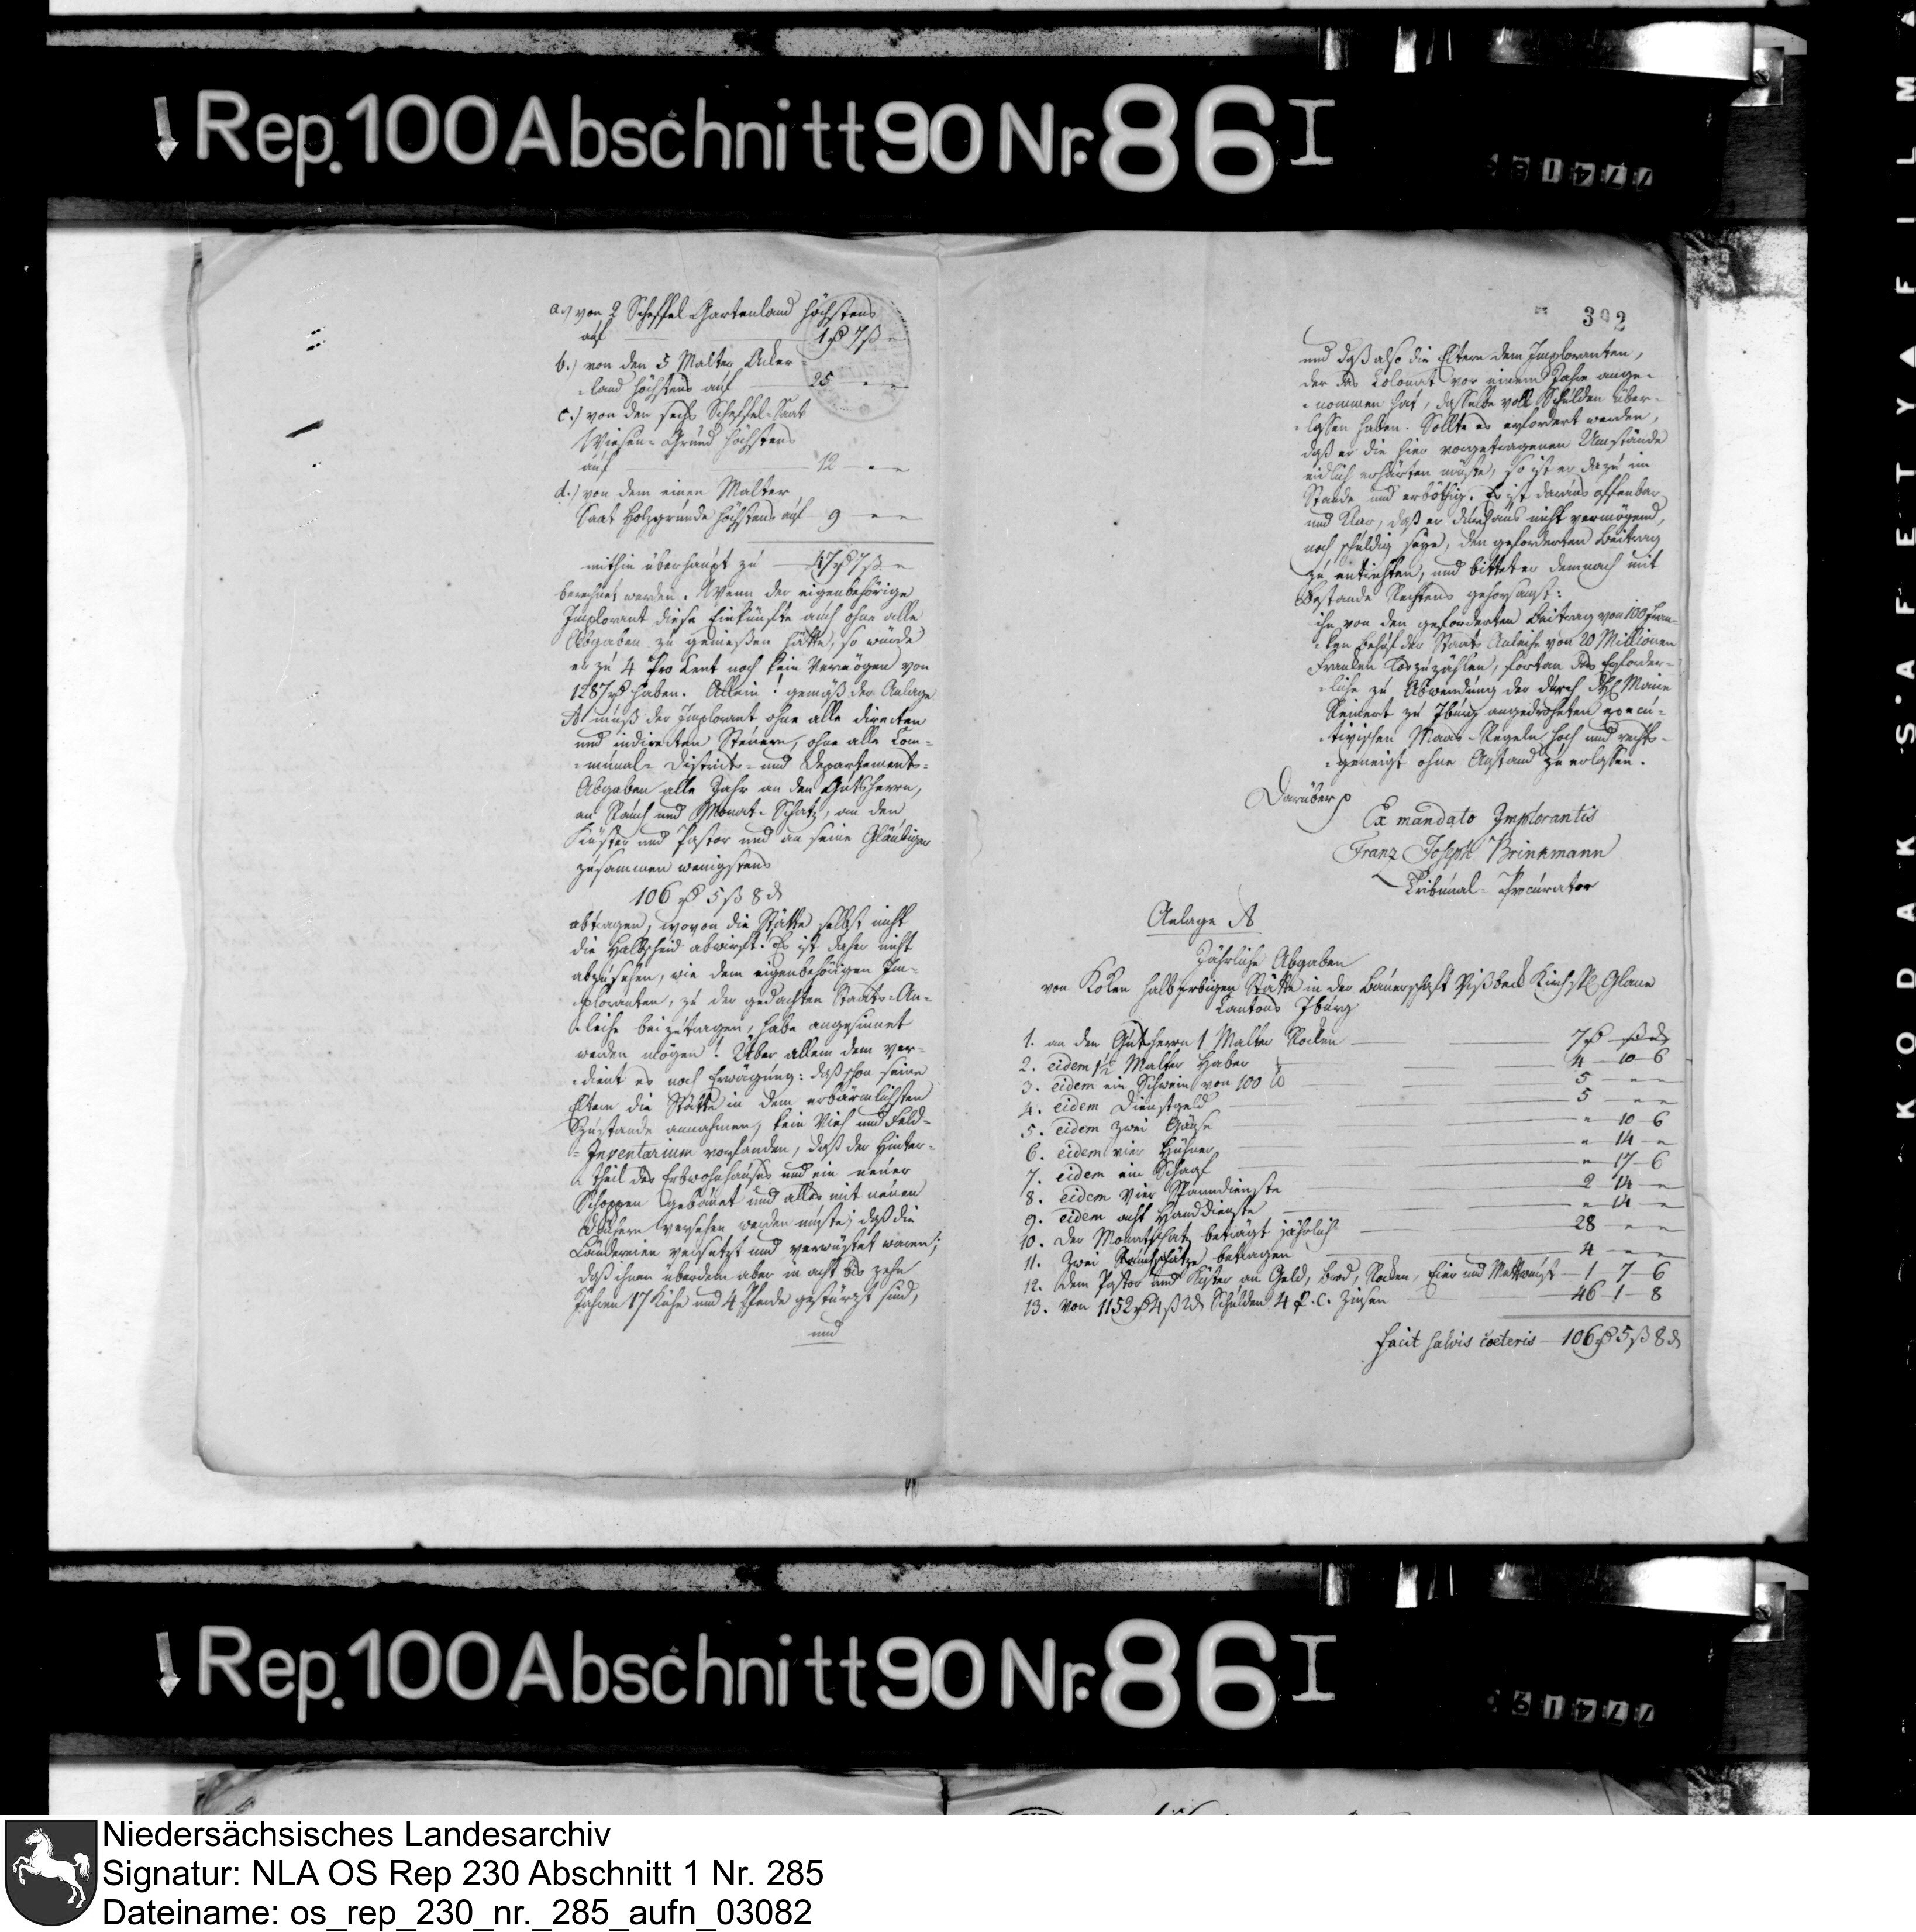 Rep. 100 Abschnitt 90 Nr. 86 I
a.) von 2 Scheffel-Gartenland höchstens
auf 1 rℓ 7 ß „
b.) von den 5 Malter Acker-
„land höchstens auf 25 „ „
c.) von den sechs Scheffel-Saat
Wiesen-Grund höchstens
auf 12 „ „
d.) von dem einen Malter
Saat Holzgrunde höchstens auf 9 „ „
mithin überhaupt zu 47 rℓ 7 ß „
berechnet werden. Wenn der eigenbehörige
Implorant diese Einkünfte auch ohne alle
Abgaben zu genießen hätte, so würde
er zu 4 Pro Cent noch kein Vermögen von
1287 rℓ haben. Allein! gemäß der Anlage
A muß der Implorant ohne alle directen
und indirecten Steuern, ohne alle Com-
„munal- District- und Departements-
Abgaben alle Jahr an den Gutsherrn,
an Rauch und Monat-Schatz, an den
Küster und Pastor und an seine Gläubiger
zusammen wenigstens
106 rℓ 5 ß 8 d
abtragen, wovon die Stätte selbst nicht
die Halbscheid abwirft. Es ist daher nicht
abzusehen, wie dem eigenbehörigen Im-
„ploranten, zu der gedachten Staats-An-
„leihe beizutragen, habe angesinnet
werden mögen! Über allem dem ver-
„dient es noch Erwägung: daß schon seine
Eltern die Stätte in dem erbärmlichsten
Zustande annahmen, kein Vieh und Feld-
„Inventarium vorfanden, daß der Hinter-
„theil des Erbwohnhauses und ein neuer
Schoppen gebauet und alles mit neuen
Dächern versehen werden mußte; daß die
Ländereien versetzt und verwüstet waren;
daß ihnen überdem aber in acht bis zehn
Jahren 17 Kühe und 4 Pferde gestürzt sind,
und
302
und daß also die Eltern dem Imploranten,
der das Colonat vor einem Jahre ange-
„nommen hat, dasselbe voll Schulden über-
„lassen haben. Sollte es erfordert werden,
daß er die hier vorgetragenen Umstände
eidlich erhärten müßte, so ist er dazu im
Stande und erböthig. Es ist daraus offenbar
und klar, daß er durchaus nicht vermögend,
noch schuldig seye, den geforderten Beitrag
zu entrichten, und bittet er demnach mit
Bestande Rechtens gehorsamst:
ihn von den geforderten Beitrag von 100 Fran-
„ken behuf der Staats Anleihe von 20 Millionen
Franken loszuzählen, fortan das Erforder-
„liche zu Abwendung der durch Maire
Reinert zu Iburg angedroheten execu-
„tivischen Maas-Regeln hoch und rechts-
„geneigt ohne Anstand zu erlassen.
Darüber
Ex mandato Implorantis
Franz Joseph Brinkmann
Tribunal-Procurator
Anlage A
Jährliche Abgaben
von Koken halberbigen Stätte in der Bauerschaft Kirchspl Glane
Cantons Iburg
1. an den Gutsherrn 1 Malter Rocken 7 rℓ ß d
2. eidem 1 1/2 Malter Haber 4 10 6
3. eidem ein Schwein von 100 ℔ 5 „ „
4. eidem Dienstgeld 5 „ „
5. eidem zwei Gänse „ 10 6
6. eidem vier Hühner „ 14 „
7. eidem ein Schaaf „ 17 6
8. eidem vier Spanndienste 2 14 „
9. eidem acht Handdienste „ 14 „
10. Der Monatschatz beträgt jährlich 28 „ „
11. Zwei Rauchschätze betragen 4 „ „
12. dem Pastor und Küster an Geld, Brod, Rocken, Eier und Mettwurst 1 7 6
13. Von 1152 rℓ 4 ß 2 d Schulden 4 p. C. Zinsen 46 1 8
Facit salvis caeteris 106 rℓ 5 ß 8 d
Rep. 100 Abschnitt 90 Nr. 86 I
KODAK SAFETY FILM
Niedersächsisches Landesarchiv
Signatur: NLA OS Rep 230 Abschnitt 1 Nr. 285
Dateiname: os_rep_230_nr._285_aufn_03082